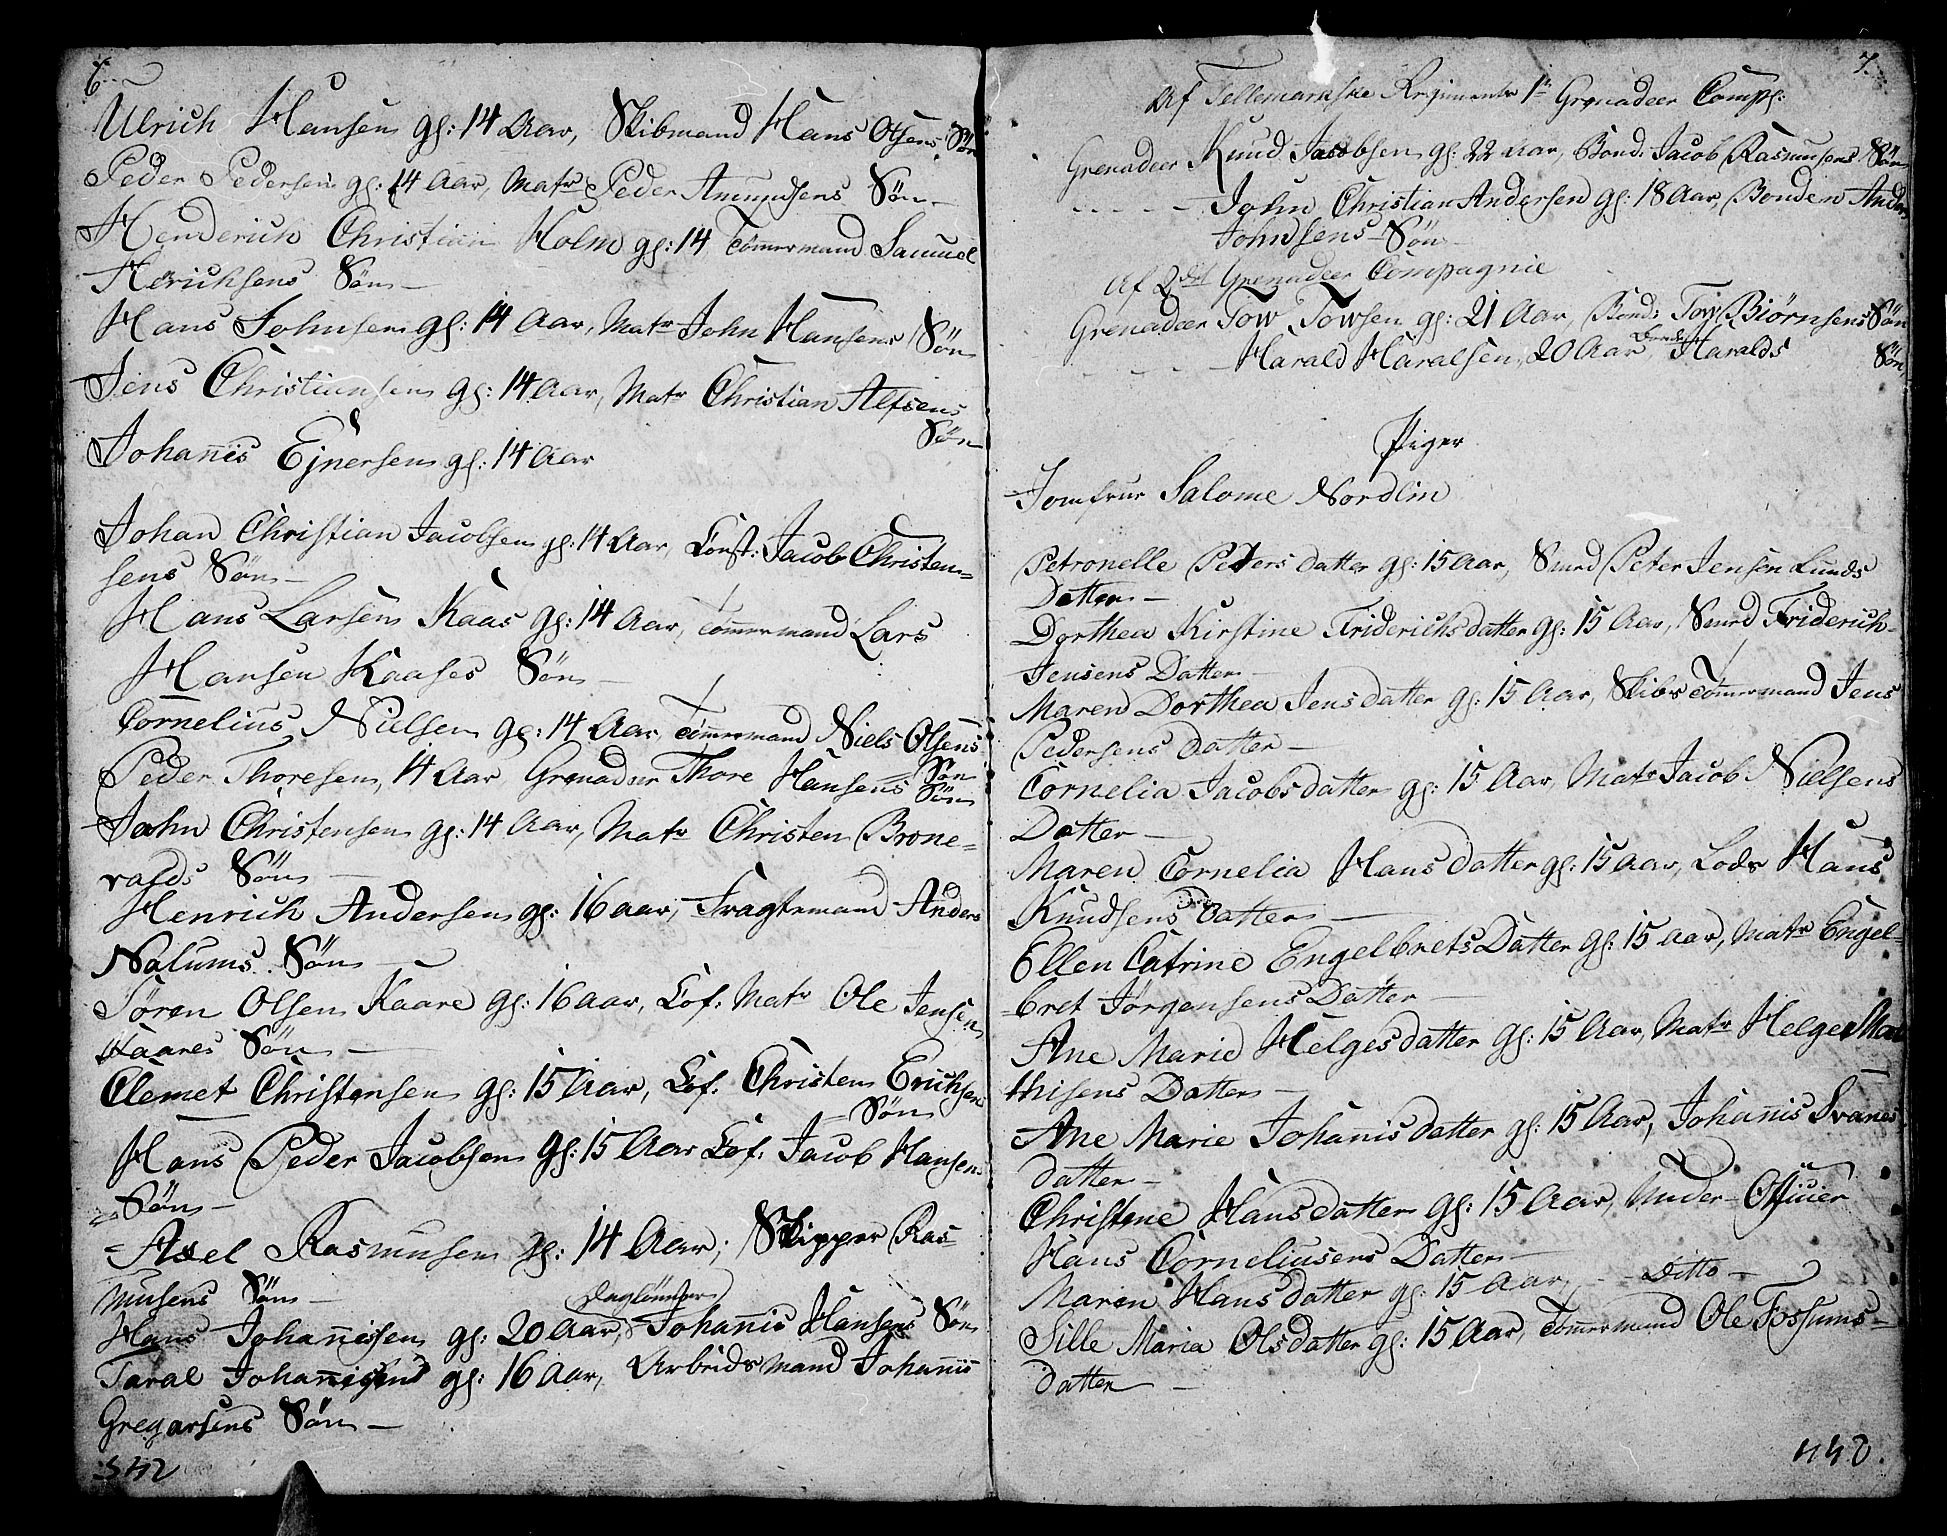 6
Ulrich Hansen gl: 14 Aar, Skibmand Hans Olsens Søn
Peder Pedersen gl: 14 Aar, Matr Peder Amundsens Søn –
Henderich Christian Holm gl: 14, Tömmermand Samuel
Herichsens Søn –
Hans Johnsen gl: 14 Aar, Matr John Hansens Søn
Jens Christiansen gl: 14 Aar, Matr Christian Alfsens
Søn
Johannis Ejnersen gl: 14 Aar
Johan Christian Jacobsen gl: 14 Aar, Const: Jacob Christen=
sens Søn –
Hans Larsen Kaas gl: 14 Aar, Tömmermand Lars
Hansen Kaases Søn –
Cornelius Nielsen gl: 14 Aar, Tömmermand Niels Olsens
Søn
Peder Thoresen, 14 Aar Grenadeer Thore Hansens Søn
John Christensen gl: 14 Aar, Matr Christen Brone=
valds Søn –
Henrich Andersen gl: 16 aar, Fragtemand Anders
Nalums Søn –
Søren Olsen Kaare gl: 16 aar, Lof. Matr Ole Jensen
Kaares Søn –
Clemet Christensen gl: 15 Aar, Lof. Christen Erichsens
– Søn
Hans Peder Jacobsen gl: 15 Aar Lof. Jacob Hansens
= Søn –
Axel Rasmusen gl: 14 Aar, Skipper Ras=
musens Søn –
Daglönner
Hans Johannissen gl: 20 Aar, Johannis Hansens Søn
Taral Johannisen gl: 16 Aar, Arbeidsmand Johannis
Gregarsens Søn –
342
7.
Af Tellemarkske Regiments 1ste Grenadeer Compg:
Grenadeer Knud Jacobsen gl: 22 aar, Bond: Jacob Rasmusens Søn
- - - - - John Christian Andersen gl: 18 Aar, Bonden Anders
Johnsens Søn –
Af 2det Grenadeer Compagnie
Grenadeer Tow Towsen gl: 21 Aar, Bond: Tow Biørnsens Søn
- - - - Harald Haralsen, 20 Aar Bonde Haralds Søn,
Piger
Jomfrue Salome Nordlin
Petronelle Peters datter gl: 15 Aar, Smed Peter Jensen Lunds
Datter –
Dorthea Kirstine Friderichs datter gl: 15 Aar, Smed Friderich
Jensens Datter –
Maren Dorthea Jens datter gl: 15 Aar, Skibs Tömmermand Jens
Pedersens datter –
Cornelia Jacobs datter gl: 15 Aar, Matr Jacob Nielsens
Datter –
Maren Cornelia Hans datter gl: 15 aar, Lods Hans
Knudsens Datter –
Ellen Catrine Engelbrets Datter gl: 15 aar, Matr Engel=
=bret Jørgensens Datter –
Ane Marie Helges datter gl: 15 Aar, Matr Helge Mat
thisens Datter –
Ane Marie Johannis datter gl: 15 Aar, Johannis Svanes
datter –
Christene Hans datter gl: 15 Aar, Under-Officier
Hans Corneliusens Datter –
Maren Hans datter gl: 15 Aar, – – Ditto –
Sille Maria Ols datter gl: 15 Aar, Tömmermand Ole Fossums=
datter –